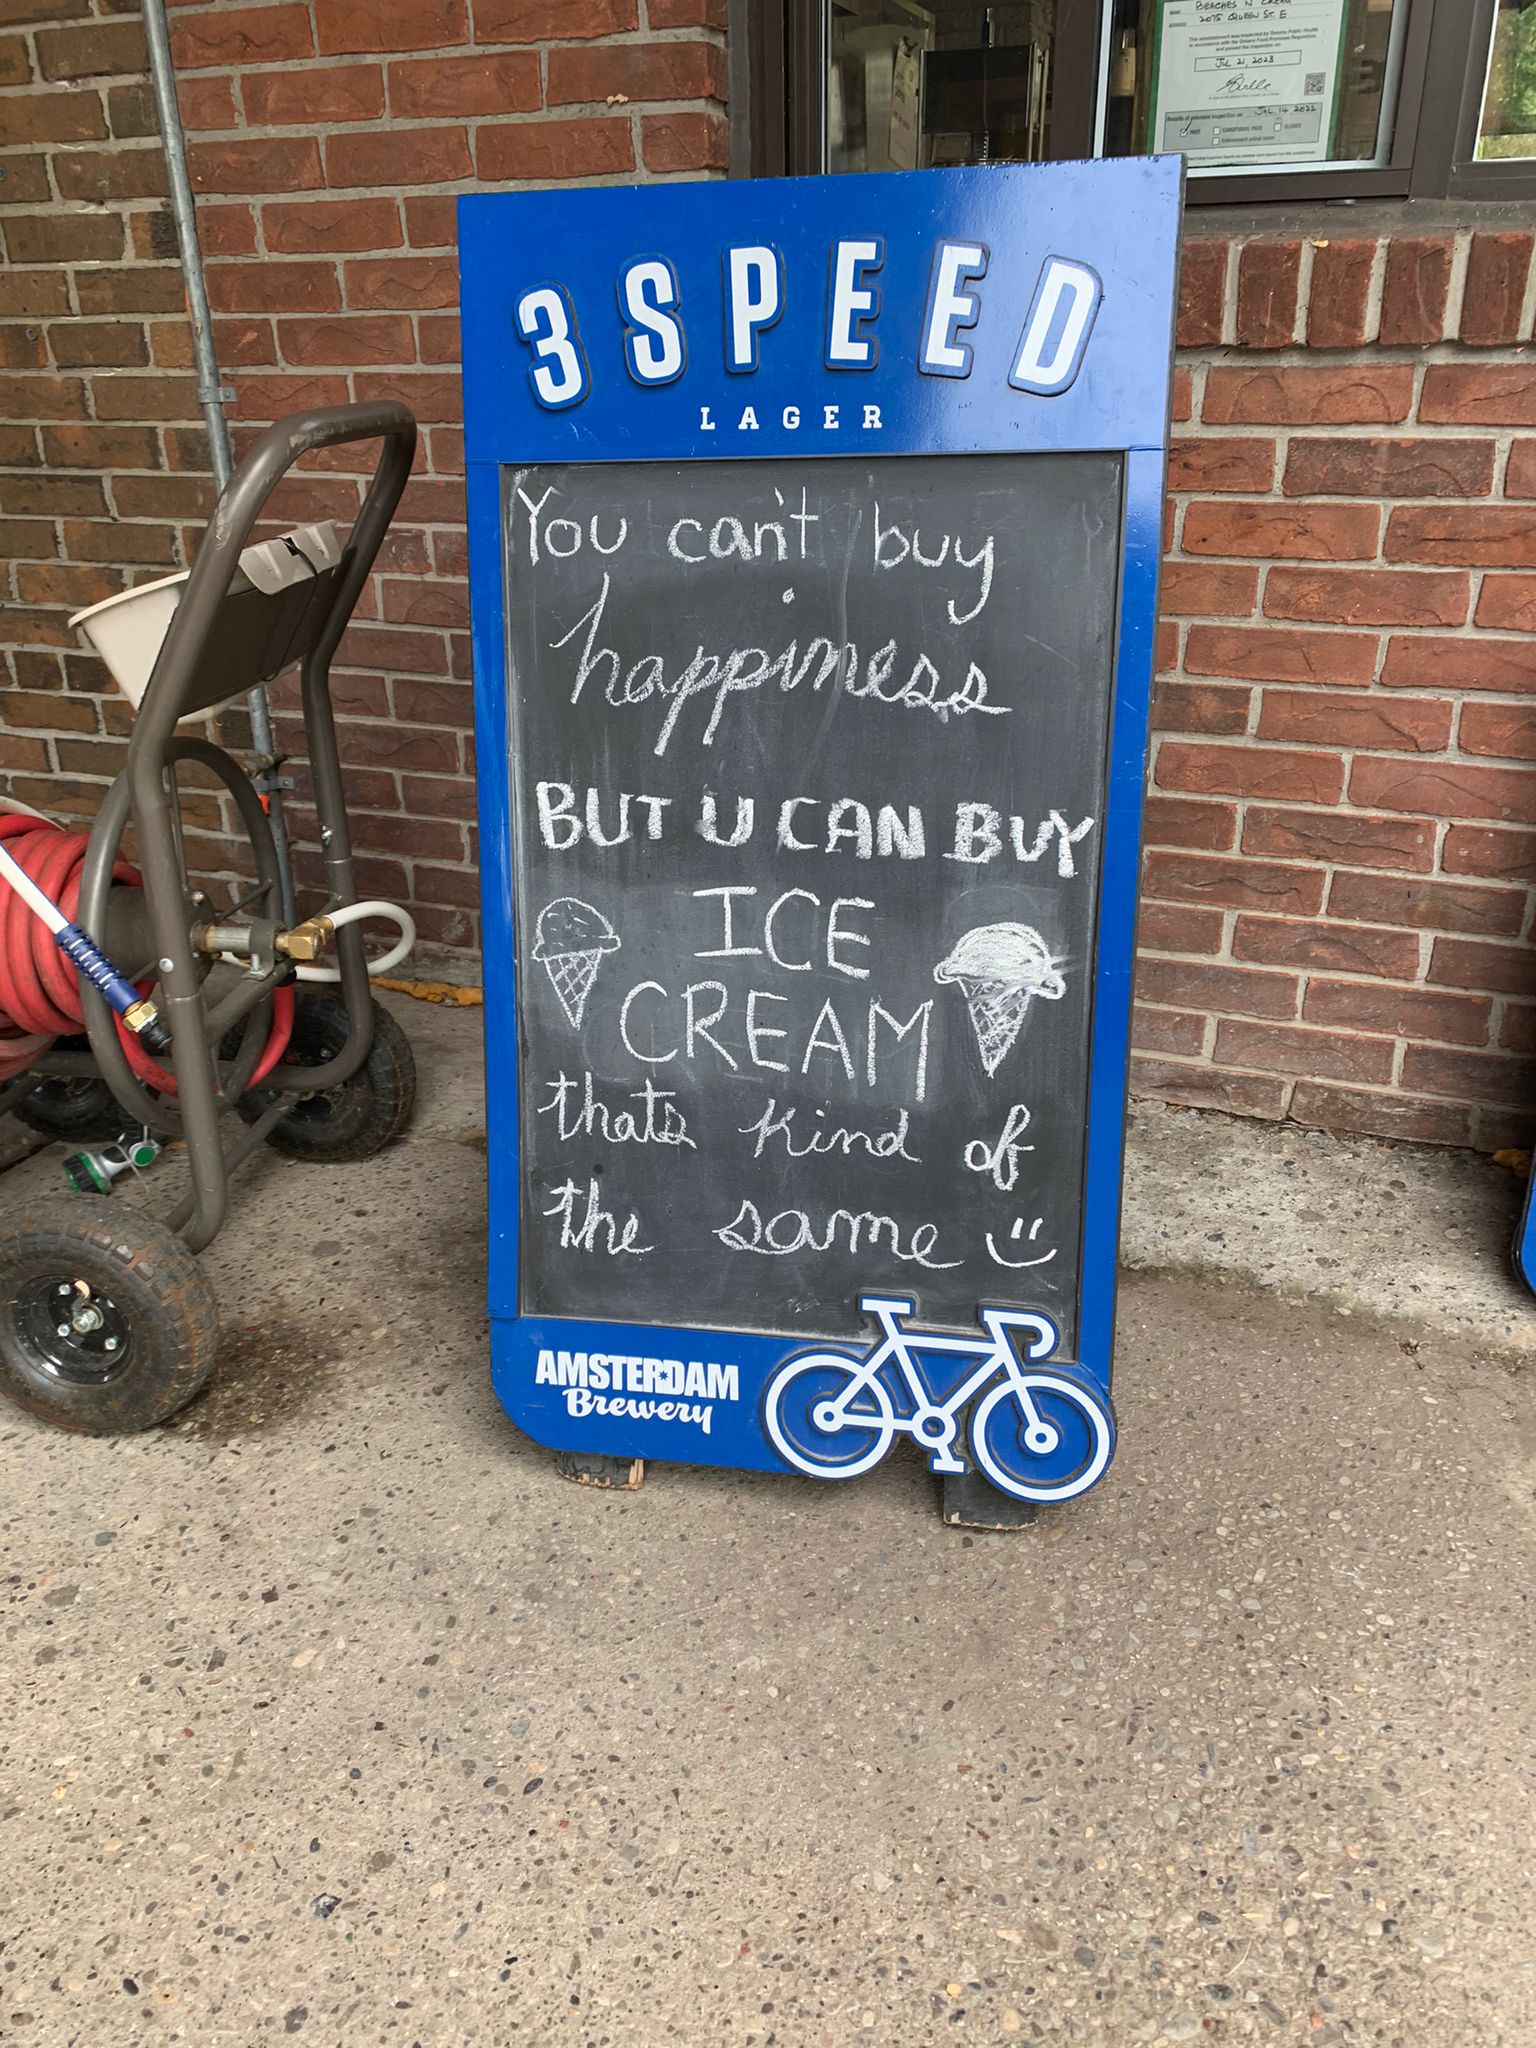 BEACHES N CREAM
2075 QUEEN ST. E.
This establishment was inspected by Toronto Public Health
in accordance with the Ontario Food Premises Regulation,
and posted the inspection on
Jul 21, 2023
Results of previous inspection on JUL 14, 2022
PASS CONDITIONAL PASS CLOSED
3 SPEED
LAGER
You can't buy
happiness
BUT U CAN BUY
ICE
CREAM
thats kind of
the same
AMSTERDAM
Brewery